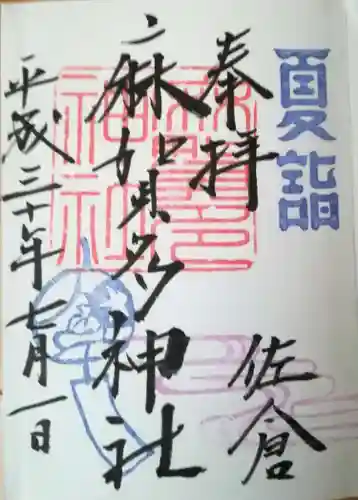 夏詣
奉拝
佐倉
麻賀多神社
平成三十年七月一日